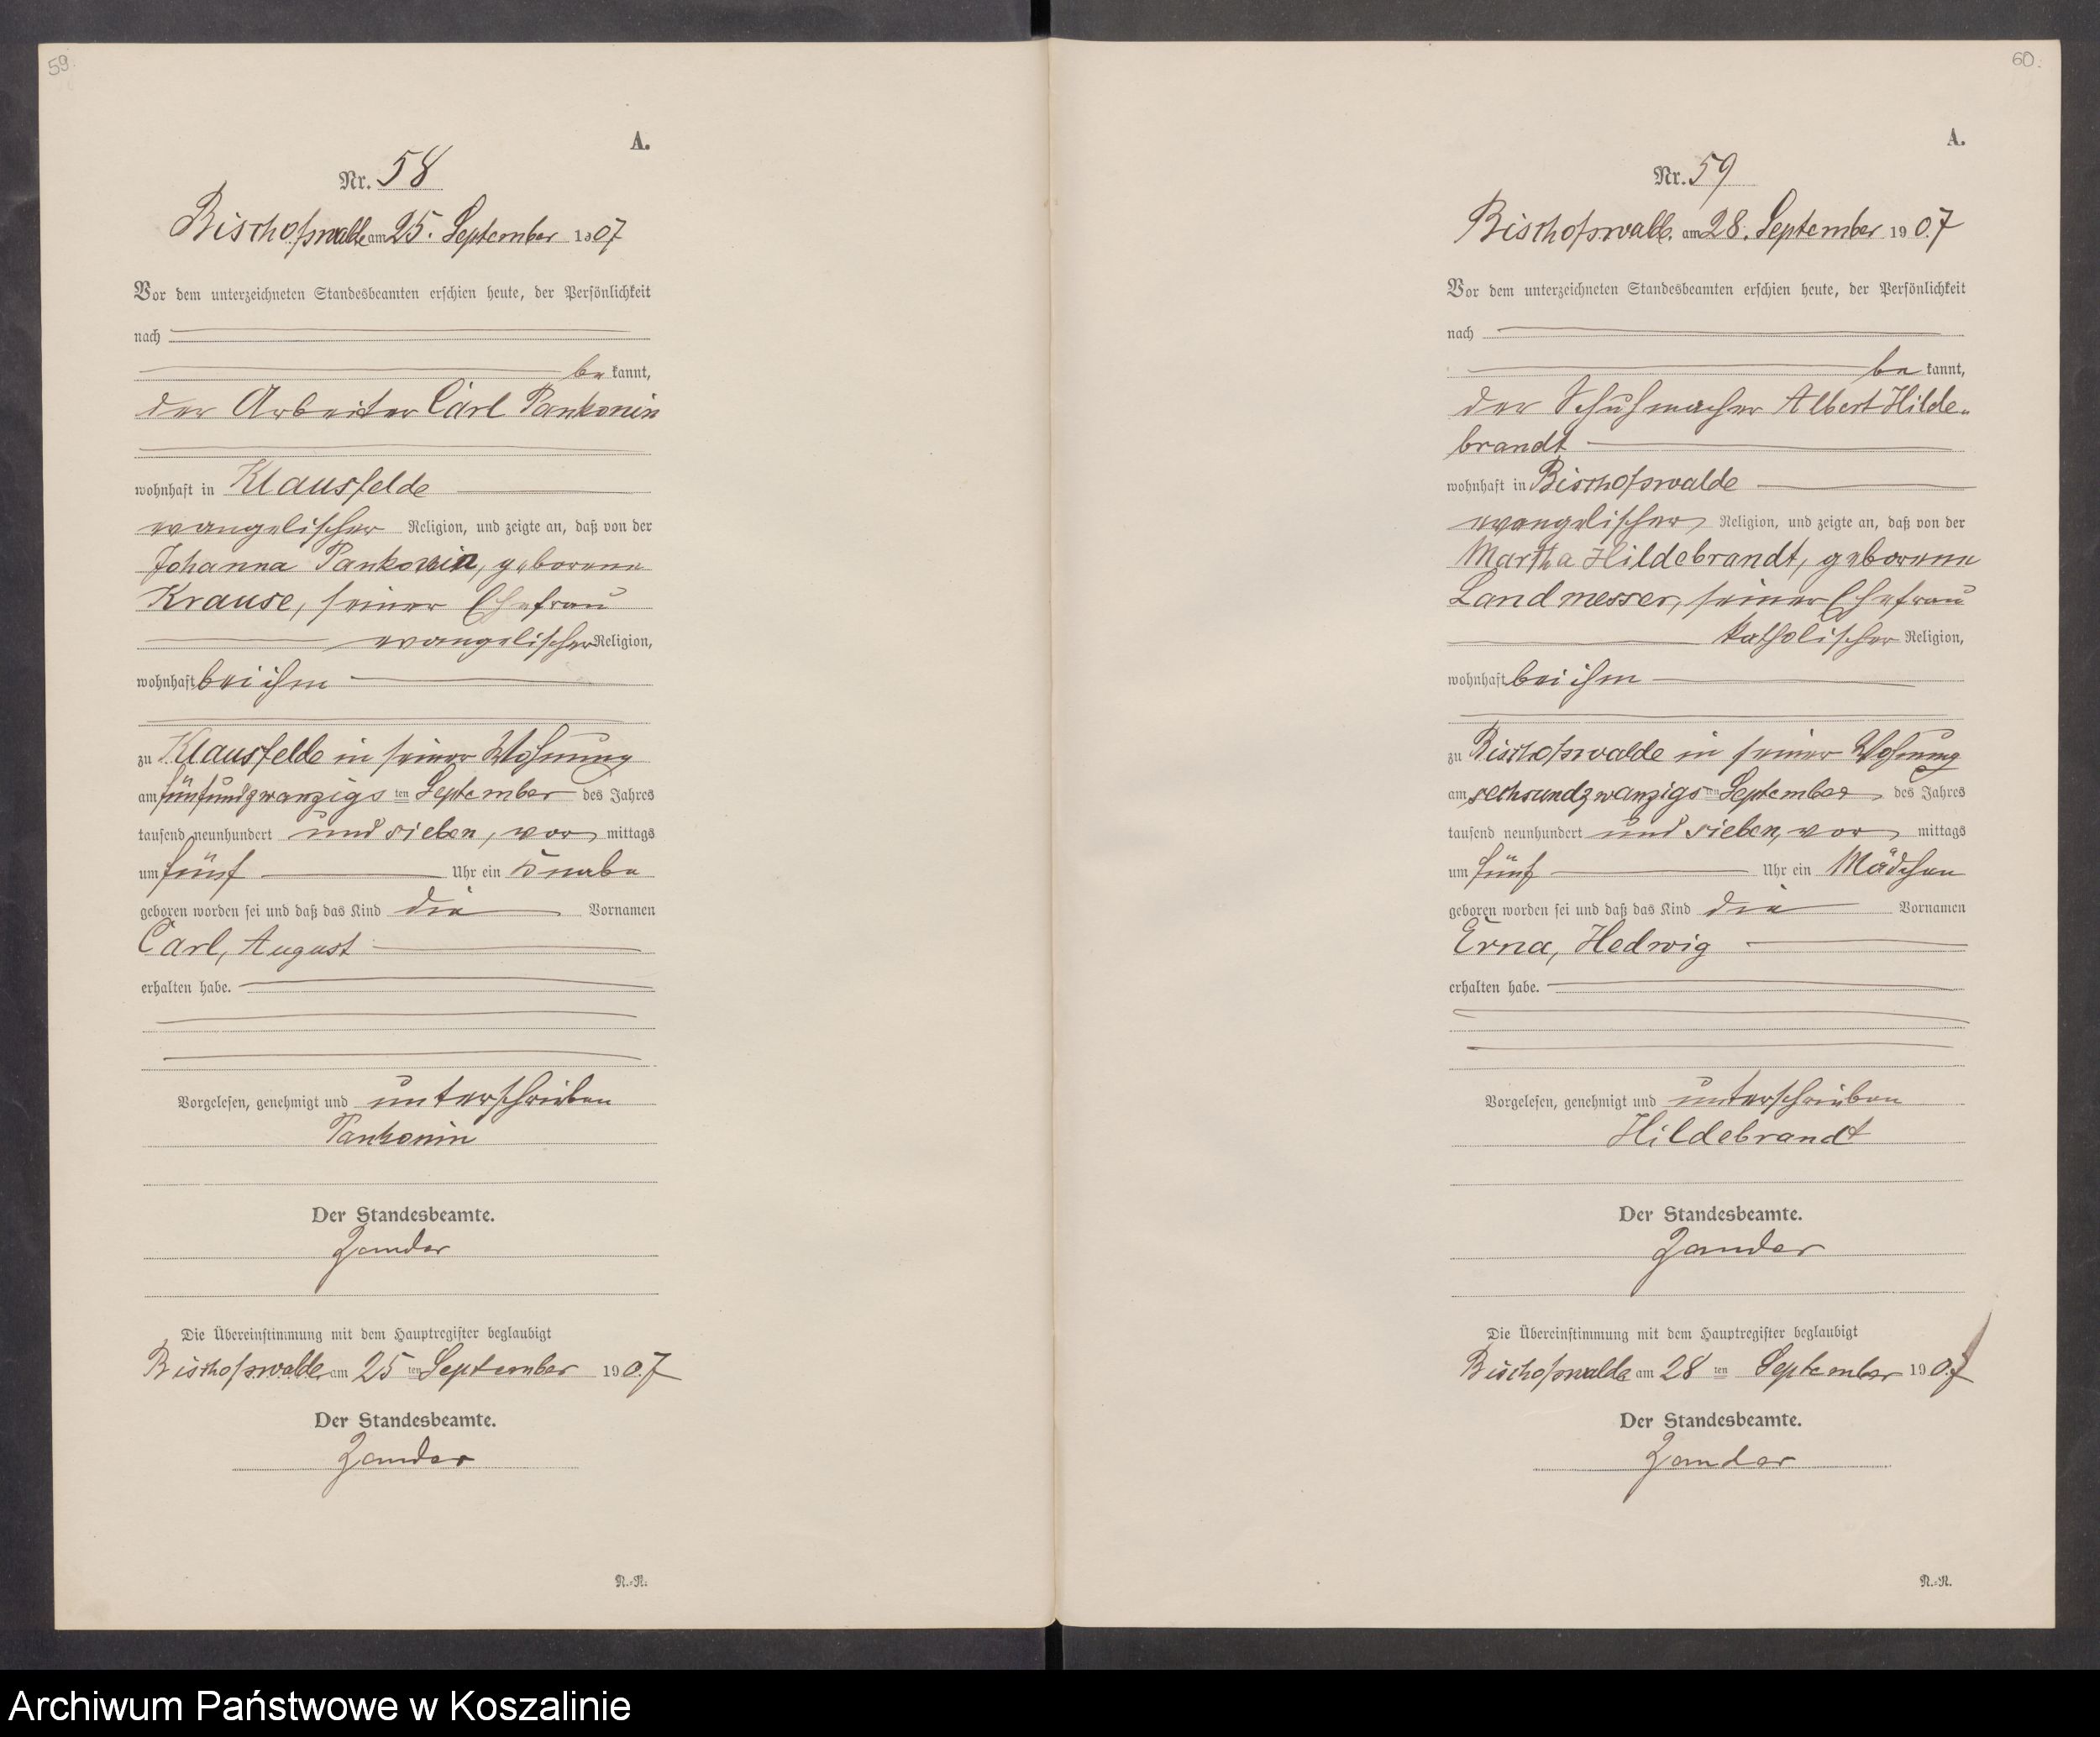 59.
A.
Nr. 58
Bischofswalde am 25. September 1907
Vor dem unterzeichneten Standesbeamten erschien heute, der Persönlichkeit
nach
be kannt,
der Arbeiter Carl Pankonin
wohnhaft in Klausfelde
evangelischer Religion, und zeigte an, daß von der
Johanna Pankonin, geborene
Krause, seiner Ehefrau
evangelischer Religion,
wohnhaft bei ihm
zu Klausfelde in seiner Wohnung
am fünfundzwanzigs ten September des Jahres
tausend neunhundert und sieben, vor mittags
um fünf Uhr ein Knabe
geboren worden sei und daß das Kind die Vornamen
Carl, August
erhalten habe.
Vorgelesen, genehmigt und unterschrieben
Pankonin
Der Standesbeamte.
Zander
Die Übereinstimmung mit dem Hauptregister beglaubigt
Bischofswalde am 25 ten September 1907
Der Standesbeamte.
Zander
N.-R.
60.
A.
Nr. 59
Bischofswalde am 28. September 1907
Vor dem unterzeichneten Standesbeamten erschien heute, der Persönlichkeit
nach
be kannt,
der Schuhmacher Albert Hilde-
brandt
wohnhaft in Bischofswalde
evangelischer Religion, und zeigte an, daß von der
Martha Hildebrandt, geborene
Landmesser, seiner Ehefrau
katholischer Religion,
wohnhaft bei ihm
zu Bischofswalde in seiner Wohnung
am sechsundzwanzigs ten September des Jahres
tausend neunhundert und sieben, vor mittags
um fünf Uhr ein Mädchen
geboren worden sei und daß das Kind die Vornamen
Erna, Hedwig
erhalten habe.
Vorgelesen, genehmigt und unterschrieben
Hildebrandt
Der Standesbeamte.
Zander
Die Übereinstimmung mit dem Hauptregister beglaubigt
Bischofswalde am 28 ten September 1907
Der Standesbeamte.
Zander
N.-R.
Archiwum Państwowe w Koszalinie